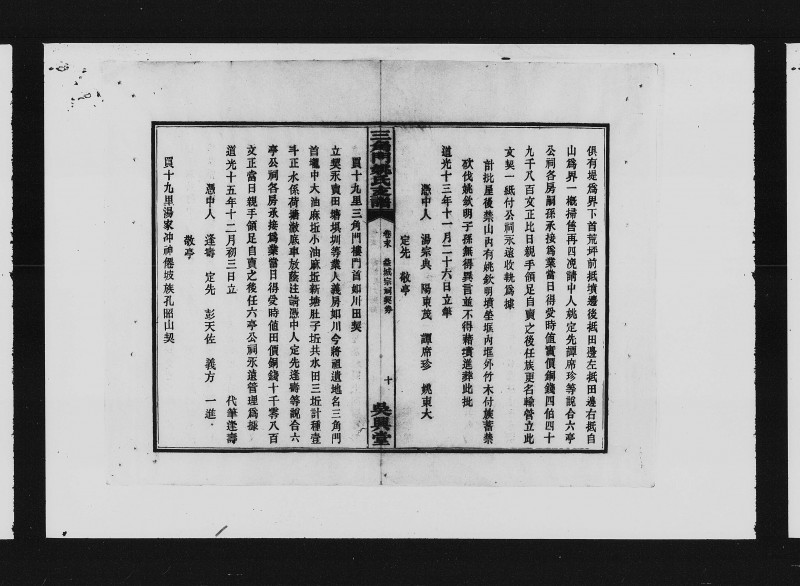 俱有堤爲界下首荒坪前抵墳邊後抵田邊左抵田邊右抵自
山爲界一概掃售再四浼請中人姚定先譚席珍等說合六亭
公祠各房嗣孫承接爲業當日得受時值賣價銅錢四伯四十
九千八百文正比日親手領足自賣之後任族更名輸管立此
文契一紙付公祠永遠收執爲據
計批屋後禁山內有姚欽明墳塋堆內堆外竹木付族蓄禁
砍伐姚欽明子孫無得異言並不得藉墳進葬此批
道光十三年十一月二十六日立筆
憑中人 湯宗典 陽東茂 譚席珍 姚東大
定先 敬亭
三角門姚氏支譜
卷末 益城宗祠契券
十
吳興堂
買十九里三角門樓門首如川田契
立契永賣田塘垻圳等業人義房如川今將祖遺地名三角門
首壠中大油麻坵小油麻坵新塘肚子坵共水田三坵計種壹
斗正水係荷塘澈底車放蔭注請憑中人定先逢壽等說合六
亭公祠各房承接爲業當日得受時值田價銅錢十千零八百
文正當日親手領足自賣之後任六亭公祠永遠管理爲據
道光十五年十二月初三日立 代筆逢壽
憑中人 逢壽 定先 彭天佐 義方 一進
敬亭
買十九里湯家冲神僊坡族孔昭山契